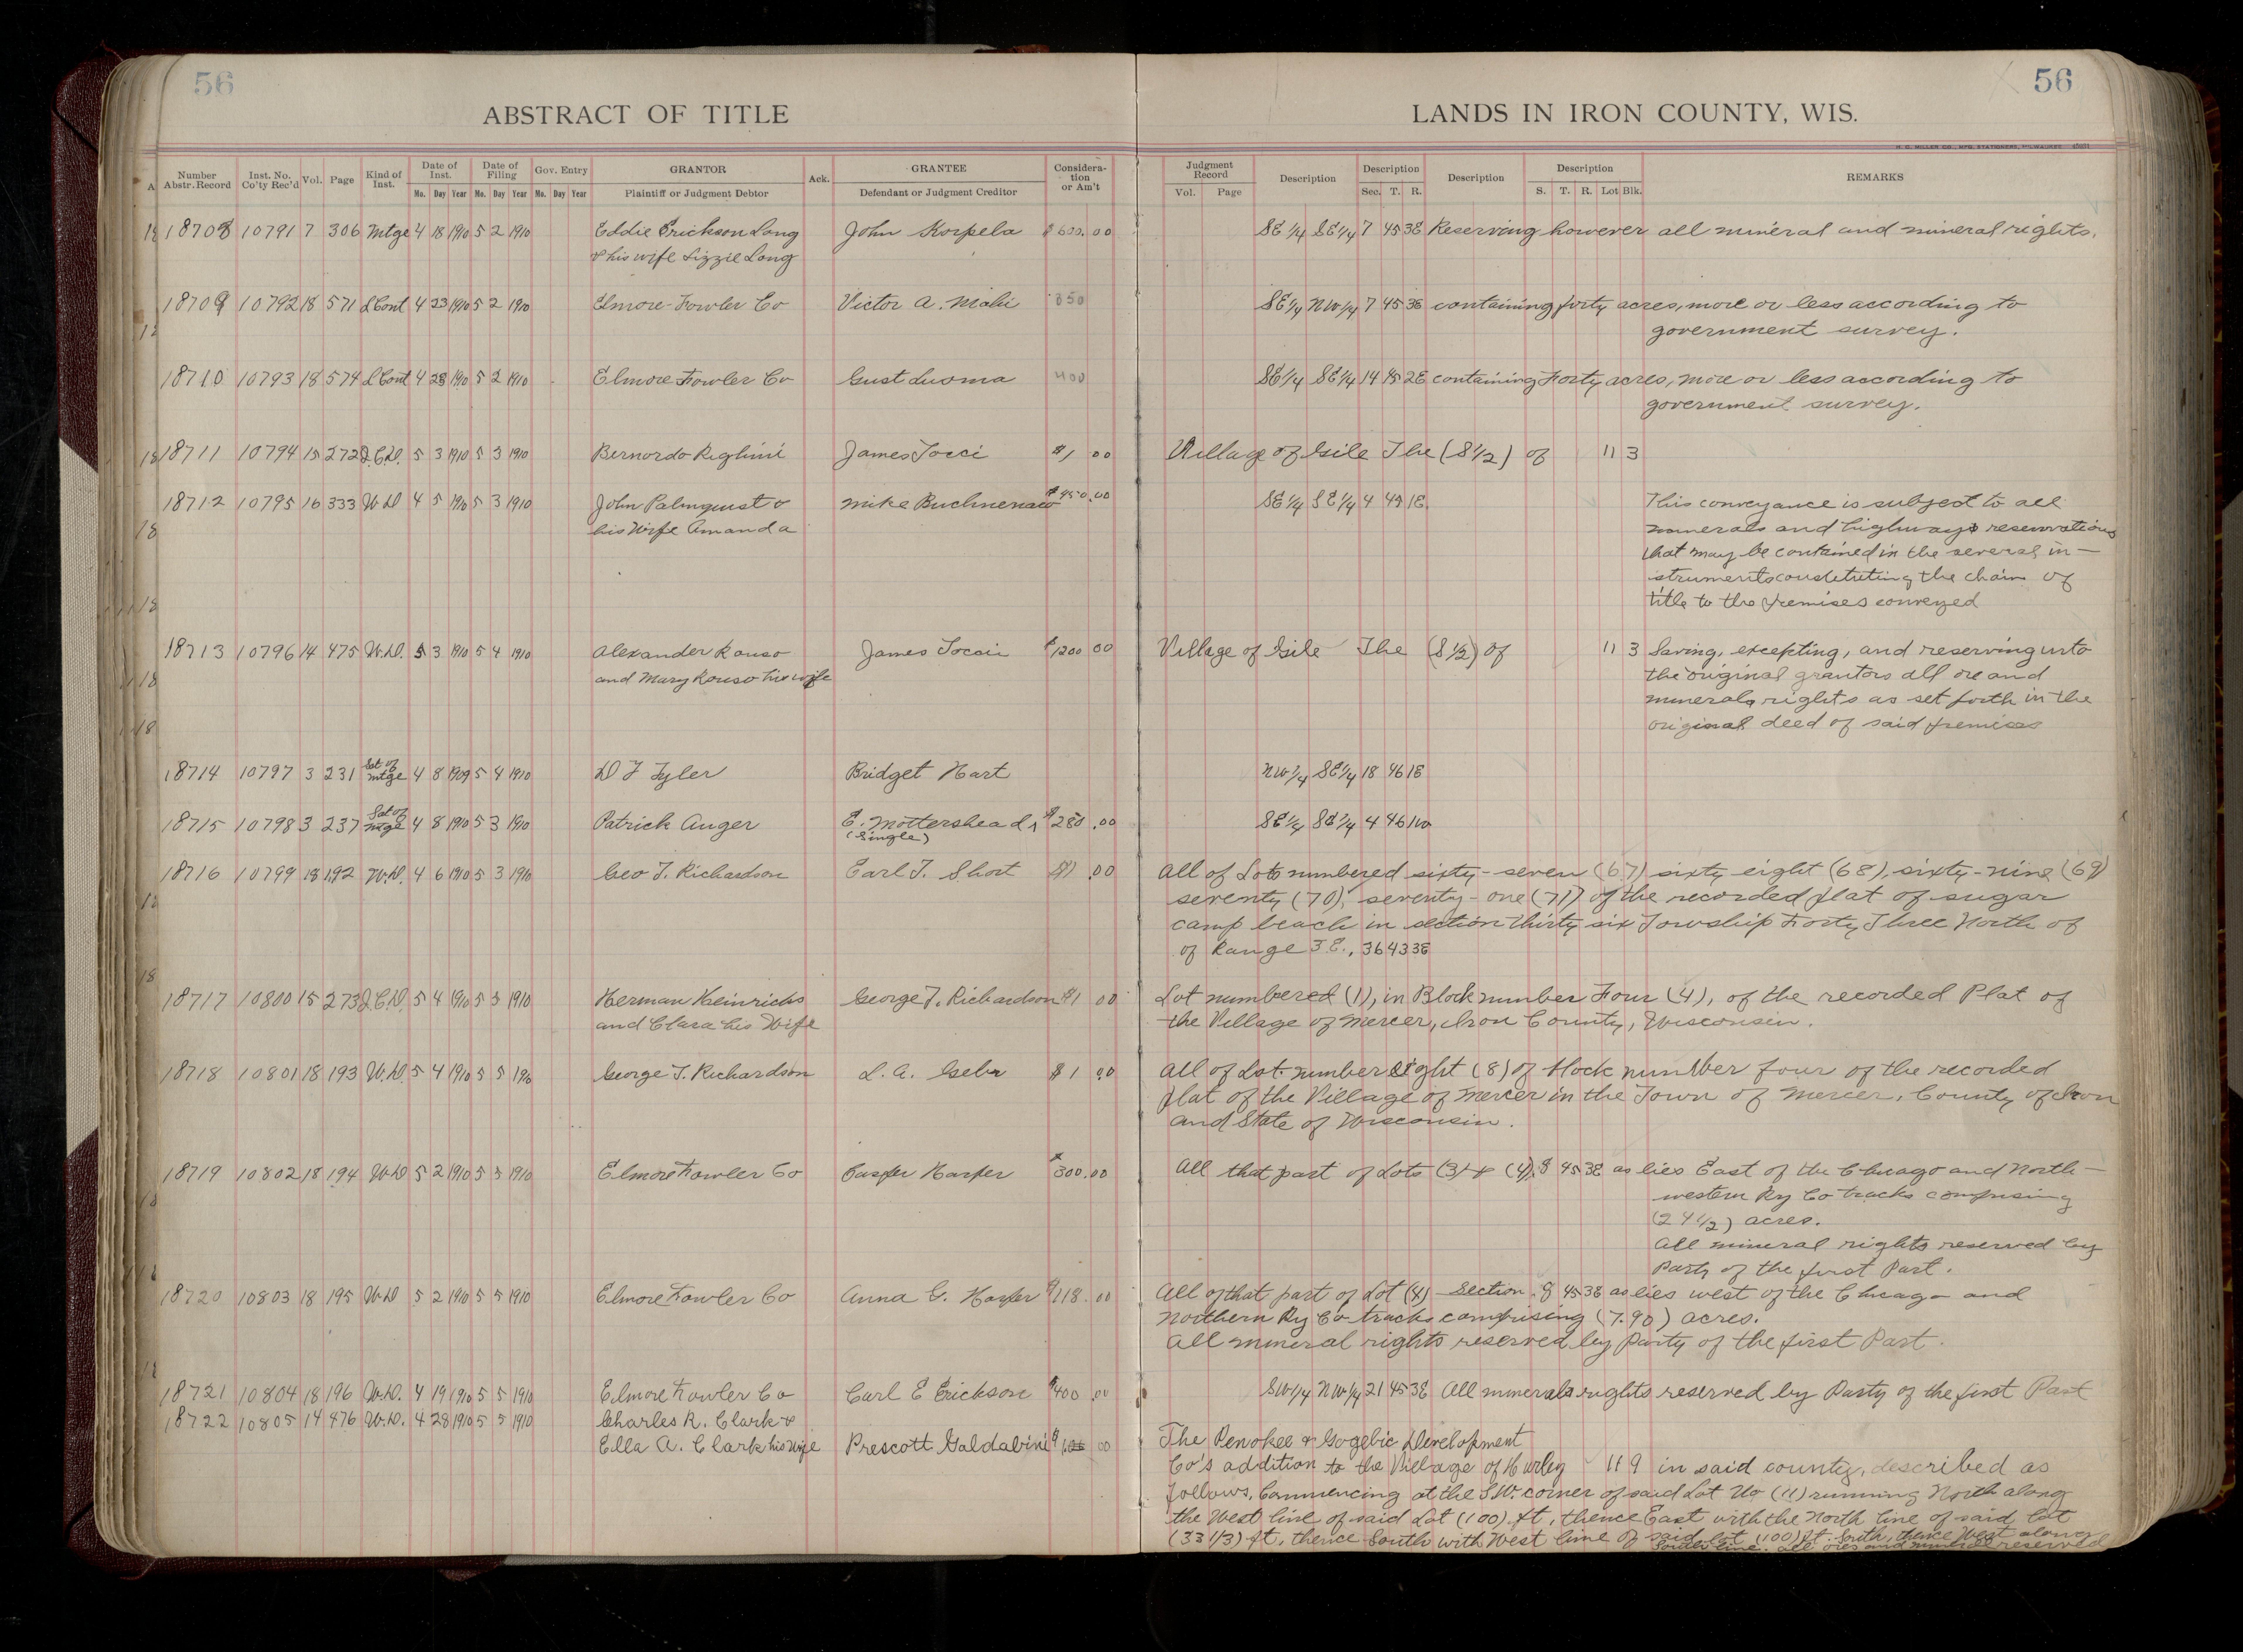 56
ABSTRACT OF TITLE
Number Abstr. Record Inst. No. Co'ty Rec'd Vol. Page Kind of Inst. Date of Inst. Mo. Day Year Date of Filing Mo. Day Year Gov. Entry Mo. Day Year GRANTOR Plaintiff or Judgment Debtor Ack. GRANTEE Defendant or Judgment Creditor Considera- tion or Am't
56
LANDS IN IRON COUNTY, WIS.
H. G. MILLER CO., MFG. STATIONERS, MILWAUKEE
Judgment Record Vol. Page Description Description Sec. T. R. Description Description S. T. R. Lot Blk. REMARKS
18708 10791 7 306 Mtge 4 18 1910 5 2 1910 Eddie Erickson Long John Korpela $600.00 SE 1/4 SE 1/4 7 45 3E Reserving however all mineral and mineral rights.
& his wife Lizzie Long
18709 10792 18 571 L Cont 4 23 1910 5 2 1910 Elmore-Fowler Co Victor A. Maki 350 SE 1/4 NW 1/4 7 45 3E containing forty acres, more or less according to
government survey.
18710 10793 18 574 L Cont 4 28 1910 5 2 1910 Elmore Fowler Co Gust Luoma 400 SE 1/4 SE 1/4 14 45 2E containing Forty acres, more or less according to
government survey.
18711 10794 15 272 Q.C.D. 5 3 1910 5 3 1910 Bernardo Righini James Tocci $1 00 Village of Gile The (S 1/2) of 11 3
18712 10795 16 333 W D 4 5 1910 5 3 1910 John Palmquist & Mike $450.00 SE 1/4 SE 1/4 4 45 1E This conveyance is subject to all
his Wife Amanda minerals and highways reservations
that may be contained in the several in-
struments constituting the chain of
title to the premises conveyed
18713 10796 14 475 W.D. 5 3 1910 5 4 1910 Alexander Rouso James $1200 00 Village of Gile The (S 1/2) of 11 3 Saving, excepting, and reserving unto
and Mary Rouso his wife the original grantors all ore and
minerals rights as set forth in the
original deed of said premises
18714 10797 3 231 Sat of Mtge 4 8 1909 5 4 1910 D F Tyler Bridget Hart NW 1/4 SE 1/4 18 46 1E
18715 10798 3 237 Sat of Mtge 4 8 1910 5 3 1910 Patrick Auger E. Mottershead $280.00 SE 1/4 SE 1/4 4 46 1W
(Single)
18716 10799 18 192 W.D. 4 6 1910 5 3 1910 Geo T. Richardson Earl T. Short $1.00 All of Lots numbered sixty-seven (67) sixty eight (68), sixty-nine (69)
seventy (70), seventy-one (71) of the recorded plat of sugar
camp beach in section thirty six Township Forty Three North of
of Range 3 E., 36 43 3E
18717 10800 15 273 Q.C.D. 5 4 1910 5 3 1910 Herman Heinrichs George T. Richardson $1 00 Lot numbered (1), in Block number Four (4), of the recorded Plat of
and Clara his Wife the Village of Mercer, Iron County, Wisconsin.
18718 10801 18 193 W.D. 5 4 1910 5 5 1910 George T. Richardson L. A. $1 00 All of Lot number eight (8) of block number four of the recorded
plat of the Village of Mercer in the Town of Mercer, County of Iron
and State of Wisconsin.
18719 10802 18 194 W.D 5 2 1910 5 3 1910 Elmore Fowler Co Harper $300.00 All that part of Lots (3) & (4), 8 45 3E as lies East of the Chicago and North-
western Ry Co tracks comprising
(24 1/2) acres.
All mineral rights reserved by
Party of the first Part.
18720 10803 18 195 W.D 5 2 1910 5 5 1910 Elmore Fowler Co Anna G. Harper $118.00 All of that part of Lot (4) Section 8 45 3E as lies west of the Chicago and
Northern Ry Co tracks comprising (7.90) acres.
All mineral rights reserved by Party of the first Part.
18721 10804 18 196 W.D. 4 19 1910 5 5 1910 Elmore Fowler Co Carl E Erickson $400.00 SW 1/4 NW 1/4 21 45 3E All minerals rights reserved by Party of the first Part
18722 10805 14 476 W.D. 4 28 1910 5 5 1910 Charles R. Clark &
Ella A. Clark his Wife Prescott Galdabini $ 00 The Penokee & Gogebic Development
Co's addition to the Village of Hurley 11 9 in said county, described as
follows, Commencing at the S.W. corner of said Lot No (11) running North along
the West line of said Lot (100) ft, thence East with the North line of said Lot
(33 1/3) ft, thence South with West line of said lot (100) ft. South, thence West along
South line. All ores and mineral reserved